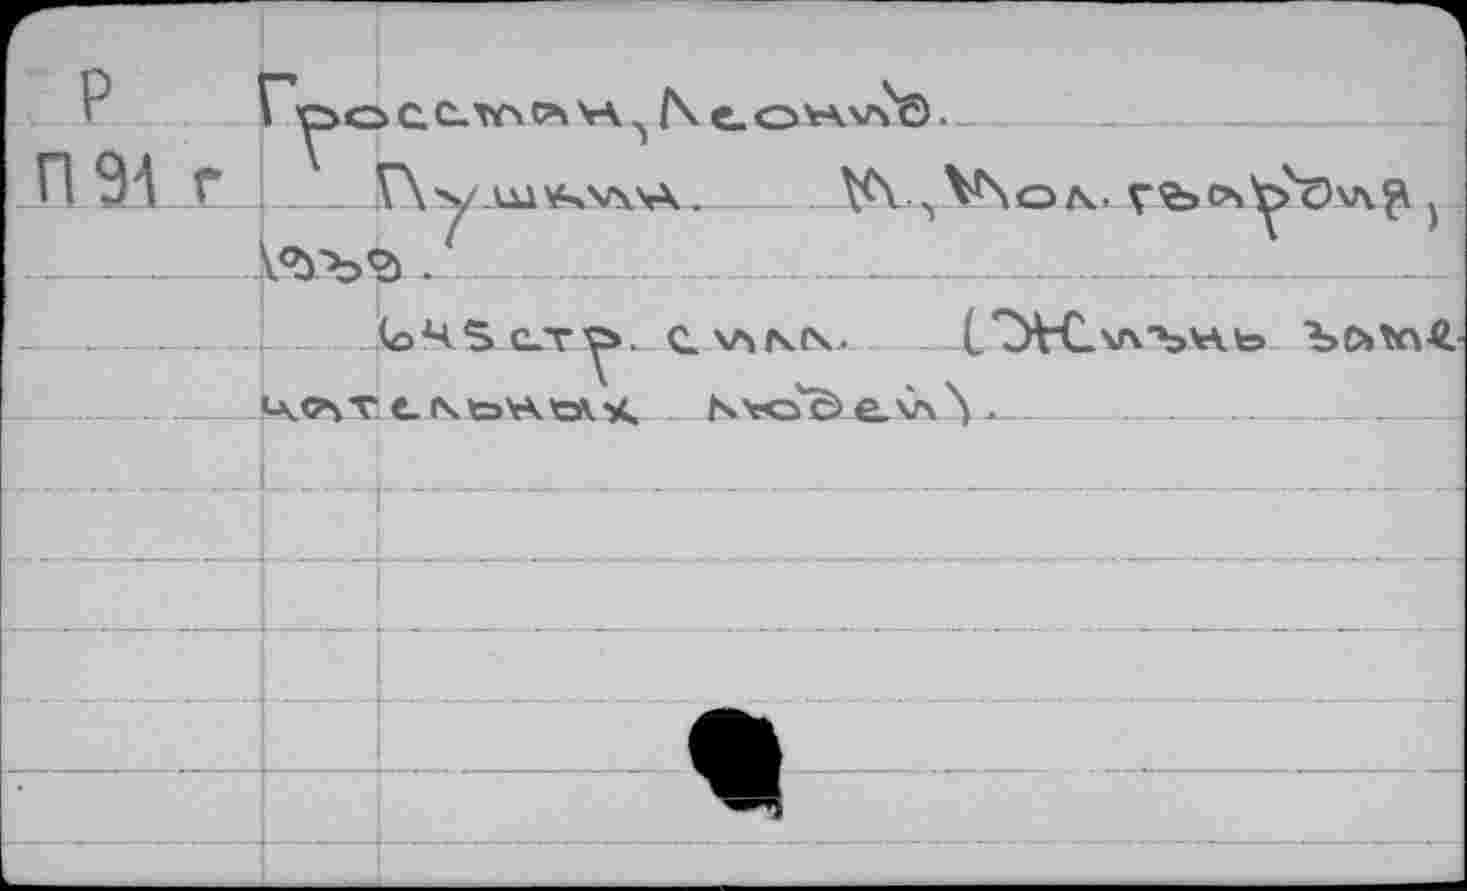 Р Гроссман, Леонид.
П 91 г Пушкин. М., Мол. гвардия,
1939.
645 стр. с илл. (Жизнь заме-
чательных людей).